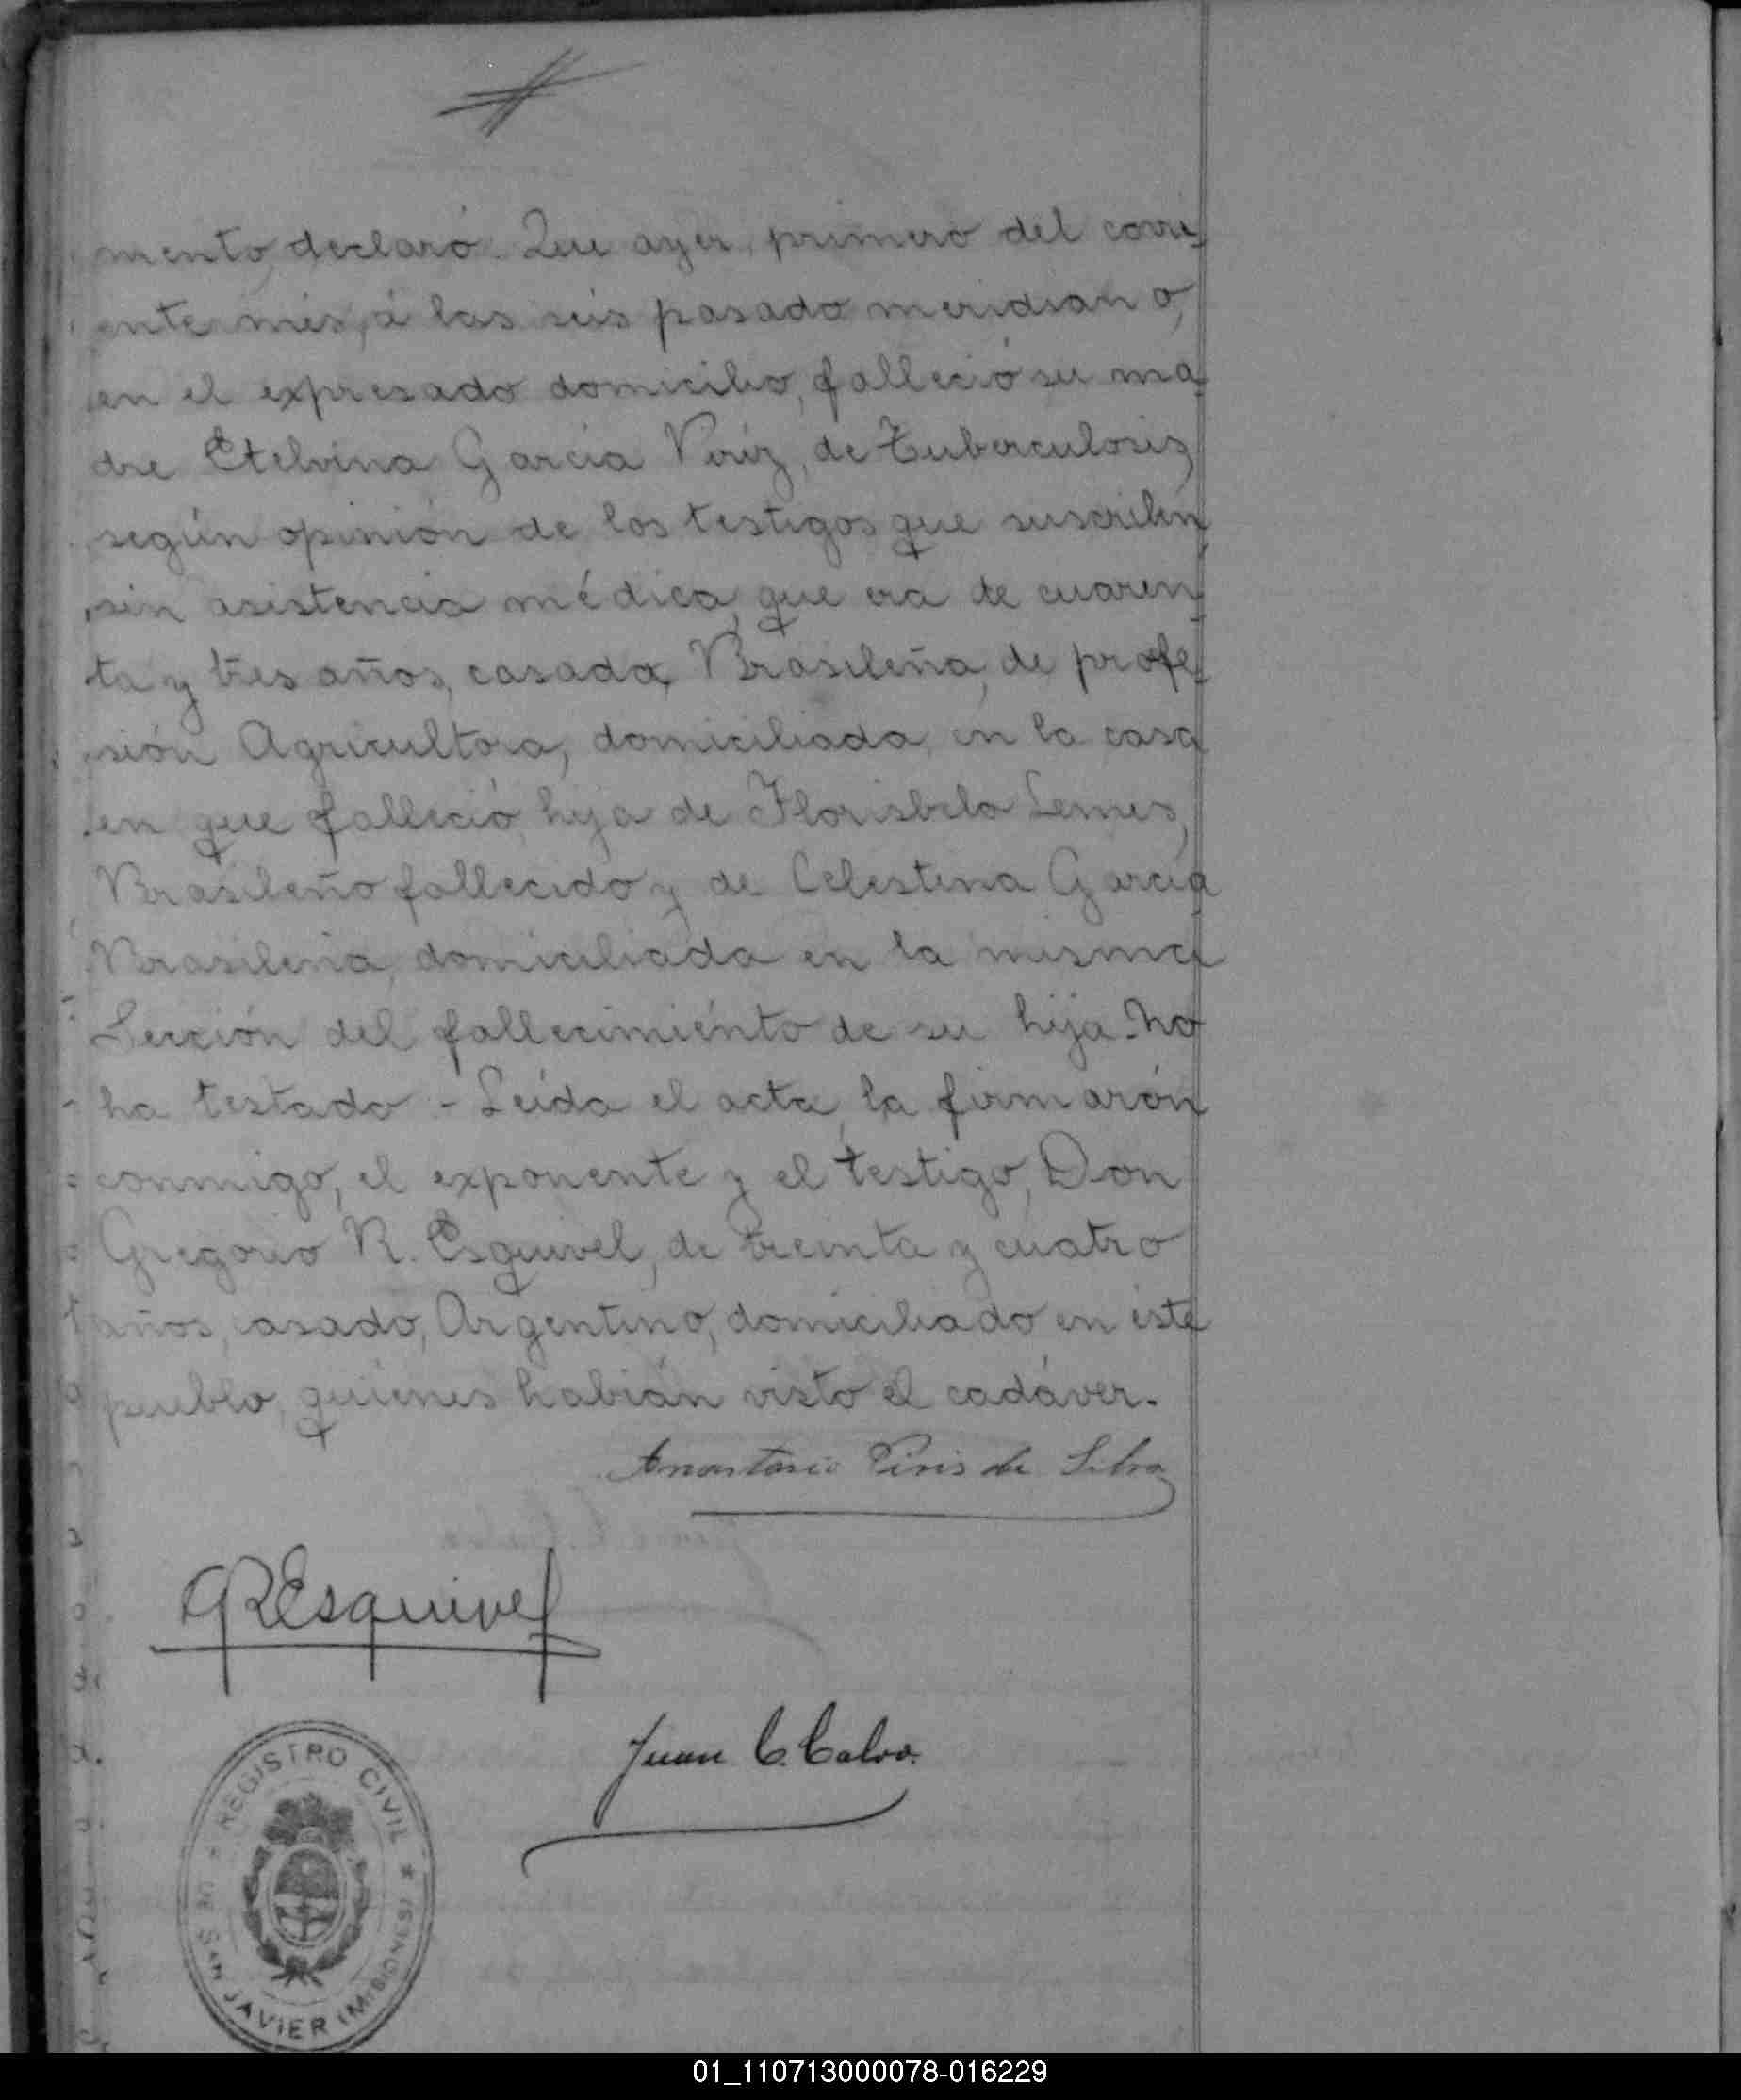 miento, declaró: Que ayer, primero del corri-
ente mes, á las seis pasado meridiano,
en el expresado domicilio, falleció su ma-
dre Etelvina García Piriz, de Tuberculosis,
según opinión de los testigos que suscriben
sin asistencia médica, que era de cuaren-
ta y tres años, casada, Brasileña, de profe-
sión Agricultora, domiciliada en la casa
en que falleció, hija de Florisbelo Lemes,
Brasileño fallecido y de Celestina García
Brasileña, domiciliada en la misma
Sección del fallecimiénto de su hija. No
ha testado - Leída el acta, la firmarón
conmigo, el exponente y el testigo, Don
Gregorio R. Esquivel, de treinta y cuatro
años, casado, Argentino, domiciliado en éste
pueblo, quiénes habián visto el cadáver.
Anastasio Piris da Silva
GREsquivel
Juan C. Calvo.
REGISTRO CIVIL
DE SAN JAVIER (MISIONES)
01_110713000078-016229